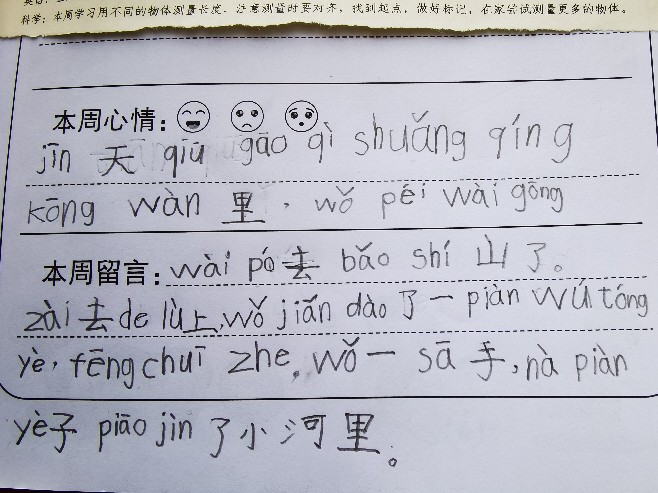 科学：本周学习用不同的物体测量长度。注意测量时要对齐，找到起点，做好标记，在家尝试测量更多的物体。
本周心情：
jīn 天 qiū gāo qì shuǎng qíng
kōng wàn 里，wǒ péi wài gōng
本周留言：wài pó 去 bǎo shí 山了。
zài 去 de lù上，wǒ jiǎn dào 了一 piàn wú tóng
yè，fēng chuī zhe，wǒ 一 sā 手，nà piàn
yè子 piāo jìn 了小河里。